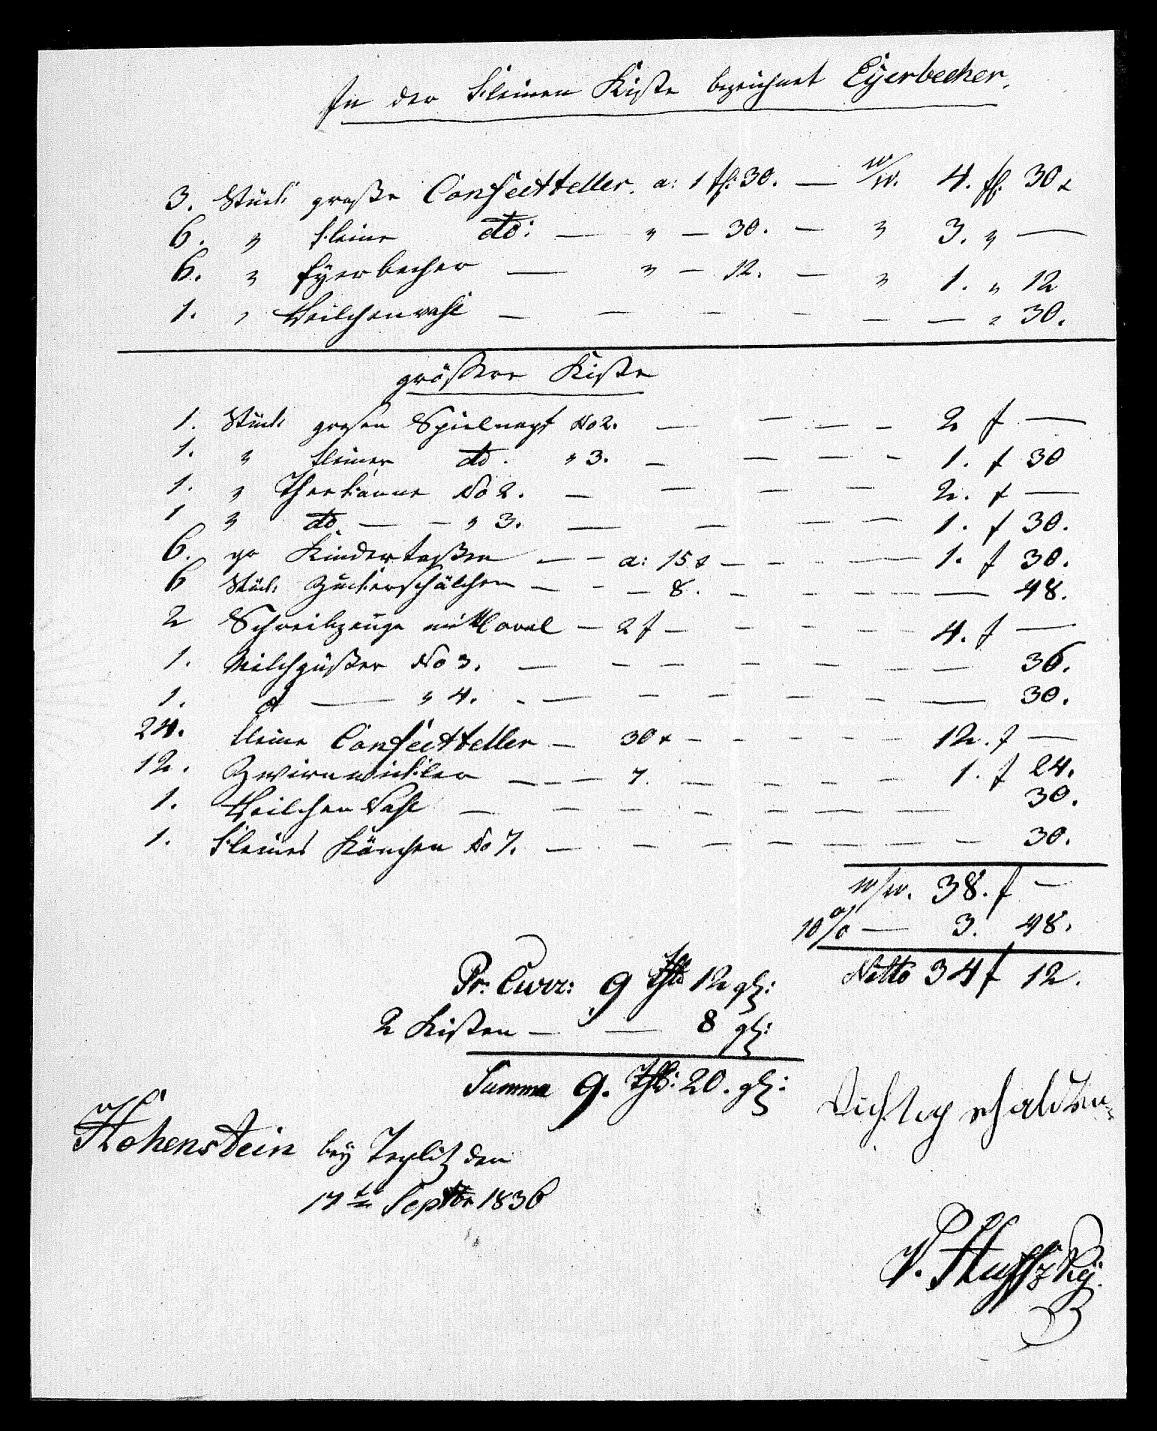 In der kleinen Kiste bezeichnet Eÿerbecher.
3. Stück große Confectteller. a: 1 f: 30. — W/W. 4. f. 30 x
6. " kleine dto: — " — 30. — " 3. " —
6. " Eÿerbecher — " — 12. — " 1. " 12
1. " Veilchenvase — — — — — — — " 30.
größere Kiste
1. Stück großen Spielnapf No 2. — — — — 2 f —
1. " kleiner do. " 3. — — — — 1. f 30
1. " Theekanne No 2. — — — — 2. f —
1 " do. — — " 3. — — — — 1. f 30.
6. gr Kindertaßen — — a: 15 x — — — — 1. f 30.
6 Stück Zuckerschälchen — — — 8. — — — — — 48.
2 Schreibzeuge mit oval — 2 f — — — — — 4. f —
1. Milchgüßer No 3. — — — — — — — 36.
1. d — " 4. — — — — — — — 30.
24. kleine Confectteller — 30 x — — — — — 12. f —
12. Zwirnwickler — — — 7. — — — — 1. f 24.
1. Veilchen Vase — — — — — — — — 30.
1. kleines Känchen No 7. — — — — — — — 30.
W/W. 38. f —
10 % — 3. 48.
Netto 34 f 12.
Pr: Curr: 9 Thl 12 gl:
2 Kisten — — 8 gl:
Summa 9. Thl: 20. gl:
Richtig erhalten
Hohenstein beÿ Teplitz den
17te Septbr 1836
V. Huffzkÿ.